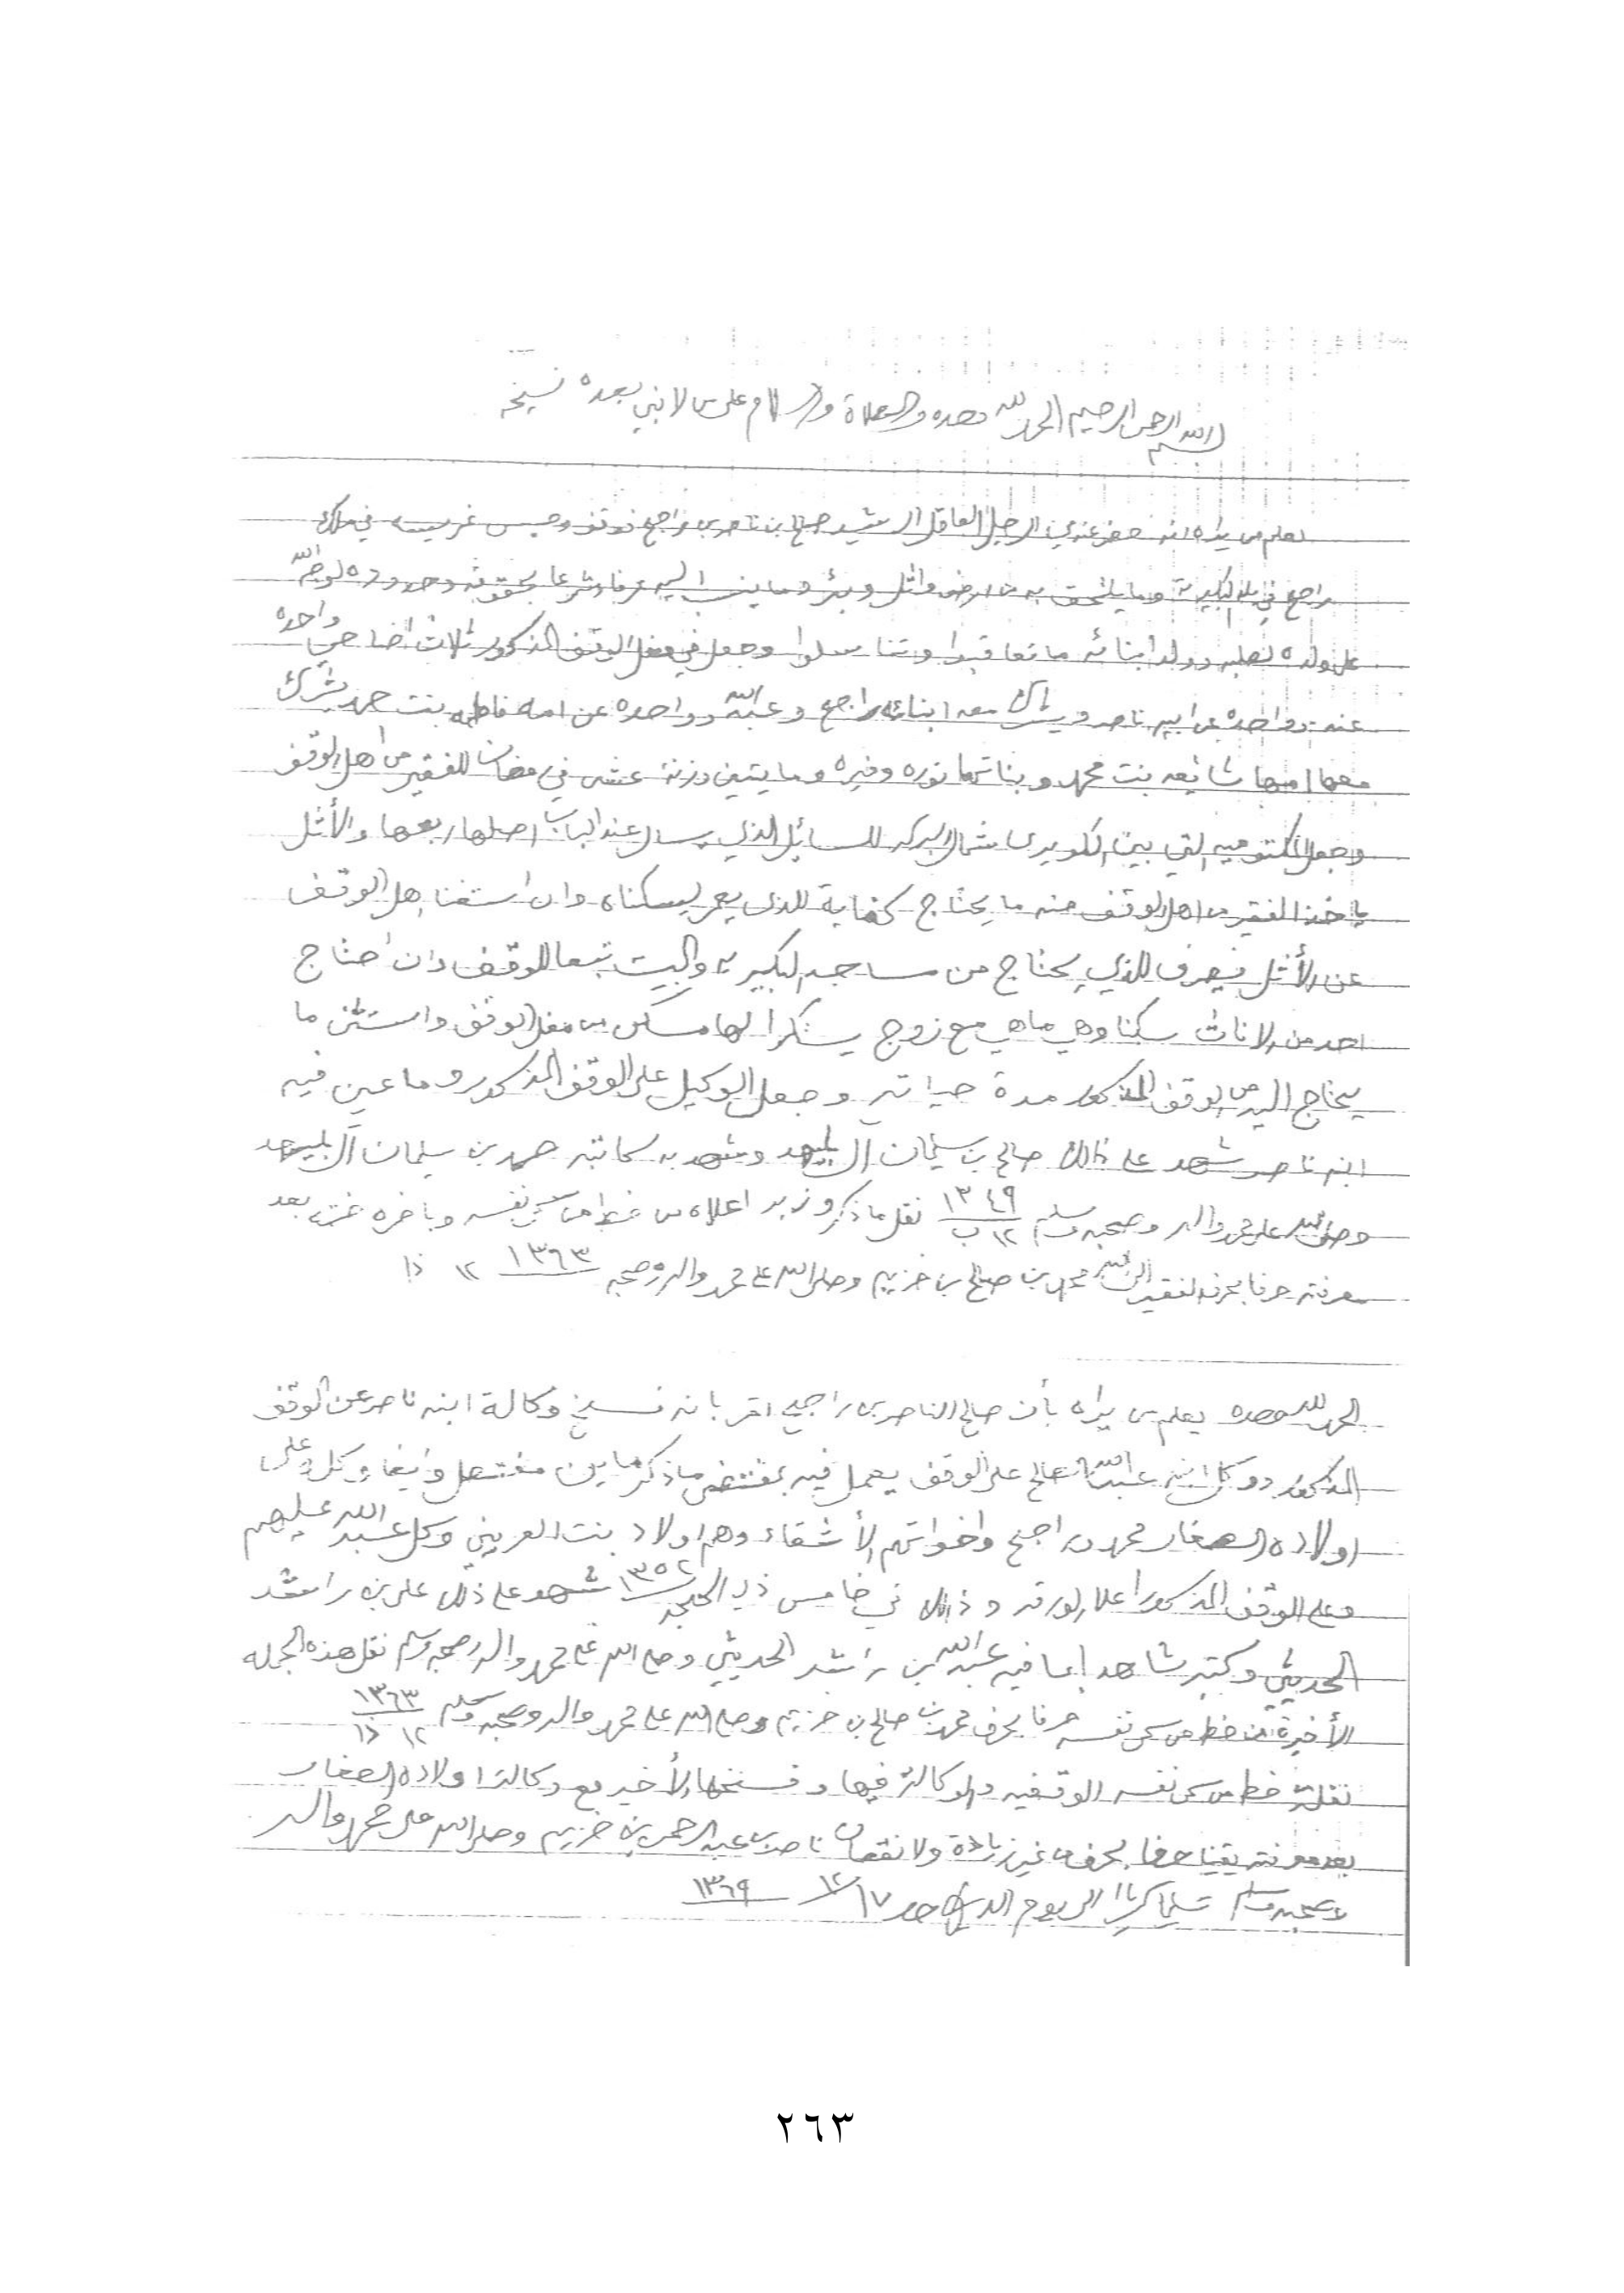 بسم الله الرحمن الرحيم الحمد لله وحده والصلاة والسلام على من لا نبي بعده نسيخه
يعلم من يراه انه حضر عندي الرجل العاقل الرشيد صالح بن ناصر بن راجح فوقف وحبس غريسه في ملك
راجح في بلد البكيرية وما يلتحق به من ارض واثل وبئر وما ينسب اليه عرفا وشرعا بحقوقه وحدوده لوجه الله
على ولده لصلبه وولد ابنائه ما تعاقبوا وتناسلوا وجعل في مغل الوقف المذكور ثلاث اضاحي واحده
عنه وواحده عن ابيه ناصر ويشرك معه ابنائه راجح وعبد الله وواحده عن امه فاطمه بنت حمد يشرك
معها امها شايعه بنت محمد وبناتها نوره وفيره وما يتيين وزنة عشى في رمضان للفقير من اهل الوقف
وجعل المكتوميه التي بين الكويرى شمال البركه للسائل الذي يسال عند الباب اصلها ربعها والأثل
ياخذ الفقير من اهل الوقف منه ما يحتاج كفاية للذي يعمر ليسكناه وان استغنا هل الوقف
عن الأثل فيصرف للذي يحتاج من مساجد البكيريه والبيت تبعا للوقف وان احتاج
احد من الاناث سكنا وهي ماهي مع زوج يستكرا لها مسكن من مغل الوقف واستثنى ما
يحتاج اليه من الوقف المذكور مدة حياته وجعل الوكيل على الوقف المذكور وما عين فيه
ابنه ناصر شهد على ذالك صالح بن سليمان آل بليهد وشهد به كاتبه حمد بن سليمان آل بليهد
وصلى الله على محمد واله وصحبه وسلم ١٣٤٩ ١٢ ب نقل ما ذكر وزبر اعلاه من خط من سمى نفسه وباخره ختمه بعد
معرفته حرفا بحرف الفقير الى الله محمد بن صالح بن خزيم وصلى الله على محمد واله وصحبه ١٣٦٣ ١٢ ذا
الحمد لله وحده يعلم من يراه بأن صالح الناصر بن راجح اقر بانه فسخ وكالة ابنه ناصر عن الوقف
المذكور ووكل ابنه عبد الله الصالح على الوقف يعمل فيه بمقتضى ما ذكر وايضا وكله على
اولاده الصغار محمد وراجح واخواتهم الأشقاء وهم اولاد بنت العريني وكل عبد الله عليهم
وعلى الوقف المذكور اعلا الورقه وذالك في خامس ذي الحجه ١٣٥٢ شهد على ذلك علي بن راشد
الحديثي وكتبه شاهدا بما فيه عبد الله بن راشد الحديثي وصلى الله على محمد واله وصحبه وسلم نقل هذه الجمله
الأخيرة من خط من سمى نفسه حرفا بحرف محمد بن صالح بن خزيم وصلى الله على محمد واله وصحبه وسلم ١٣٦٣ ١٢ ذا
نقلته خط من سمى نفسه الوقفيه والوكالة فيها وفسخها الأخير مع وكالته اولاده الصغار
بعد معرفته يقينا حرفا بحرف من غير زيادة ولا نقصان ناصر بن عبد الرحمن بن خزيم وصلى الله على محمد واله
وصحبه وسلم تسليما كثيرا الى يوم الدين حرر ١٧/١٢ ١٣٦٩
٢٦٣